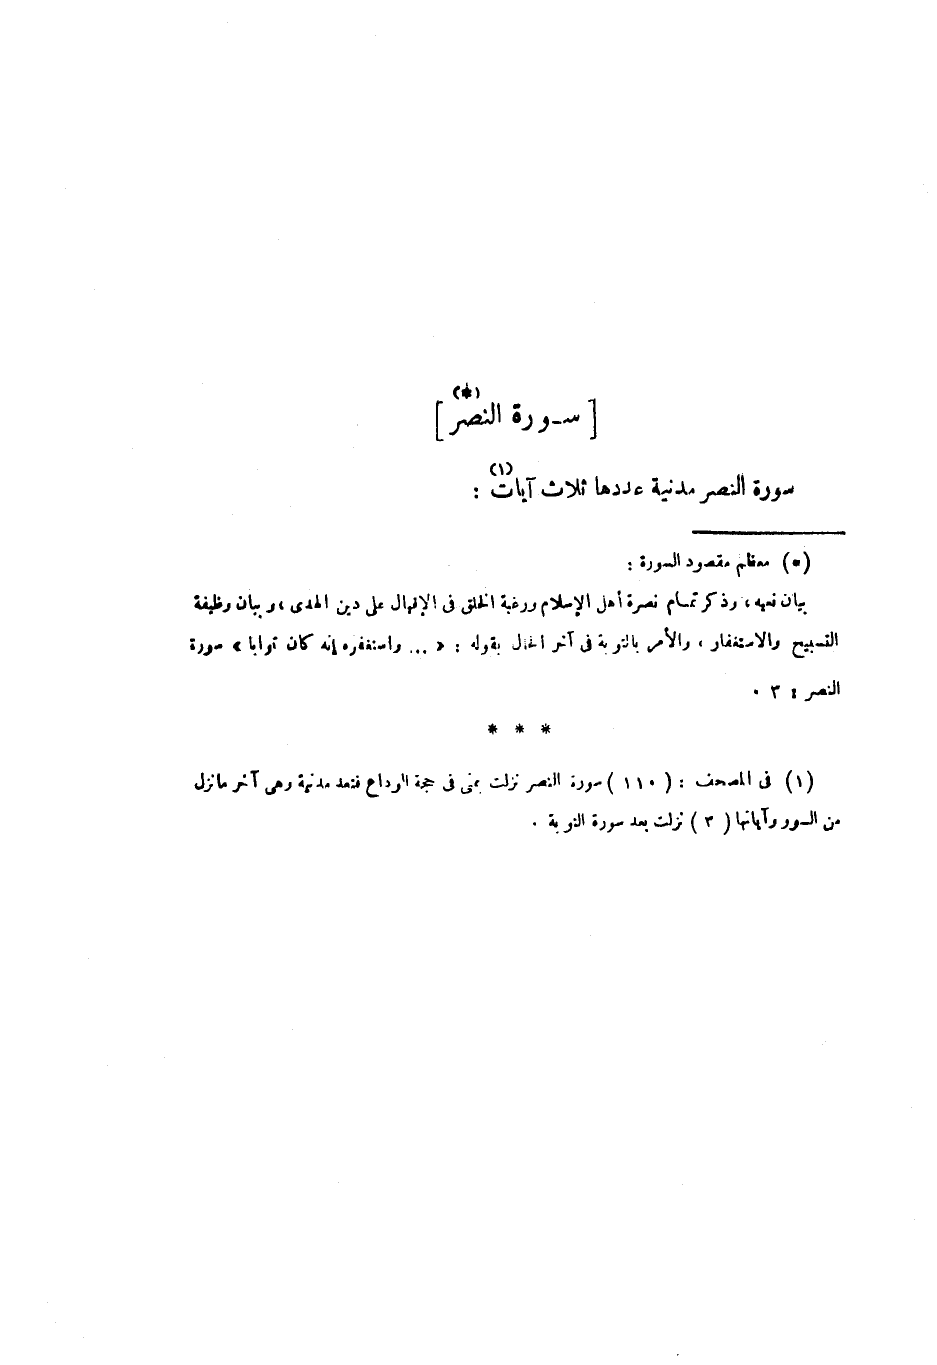 [ سورة النصر (*) ]
سورة النصر مدنية عددها ثلاث آيات (١) :
(*) معظم مقصود السورة :
بيان نعيه ، وذكر تمام نصرة أهل الإسلام ورغبة الخلق فى الإقبال على دين الهدى ، وبيان وظيفة
التسبيح والاستغفار ، والأمر بالتوبة فى آخر الحال بقوله : « ... واستغفره إنه كان توابا » سورة
النصر : ٣ .
* * *
(١) فى المصحف : ( ١١٠ ) سورة النصر نزلت بمنى فى حجة الوداع فتعد مدنية وهى آخر ما نزل
من السور وآياتها ( ٣ ) نزلت بعد سورة التوبة .